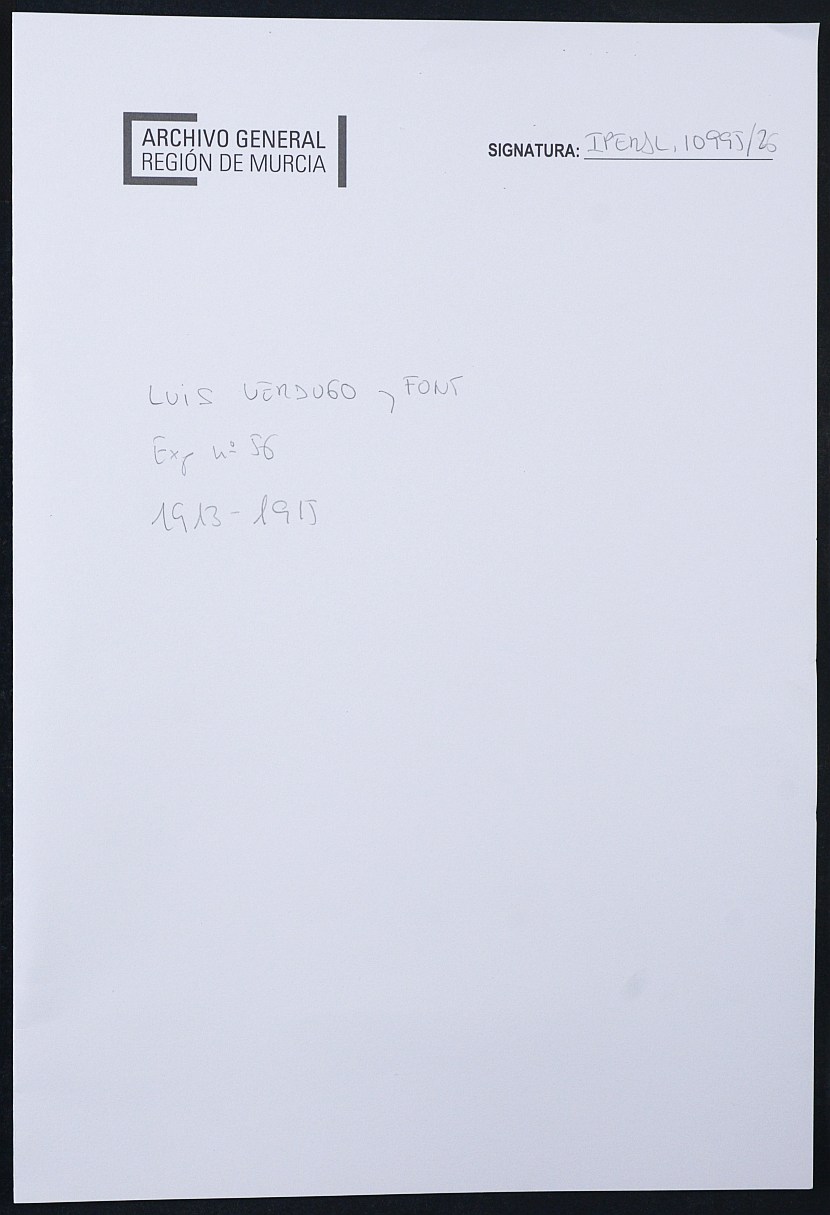 ARCHIVO GENERAL
REGIÓN DE MURCIA
SIGNATURA: IPENSL, 10995/26
LUIS VERDUGO y FONT
Exp nº 56
1913-1915